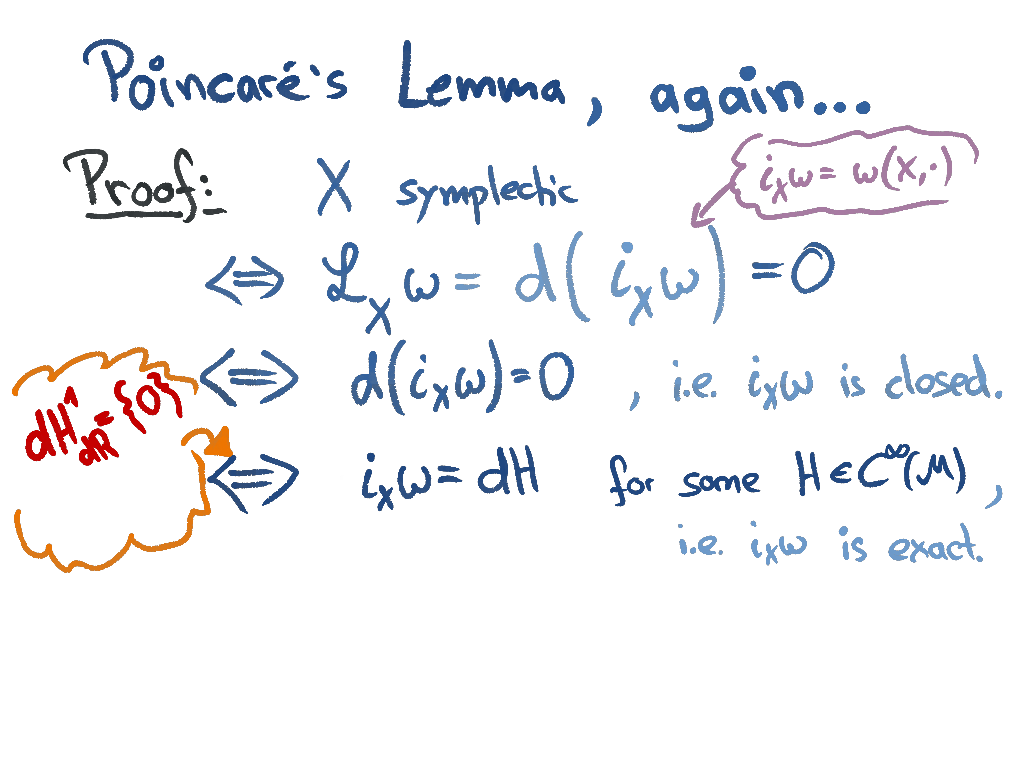 Poincaré's Lemma, again...
Proof: X symplectic
i_X ω = ω(X,·)
⇔ ℒ_X ω = d(i_X ω) = 0
⇔ d(i_X ω) = 0, i.e. i_X ω is closed.
dH¹_dR = {0}
⇔ i_X ω = dH for some H ∈ C^∞(M),
i.e. i_X ω is exact.